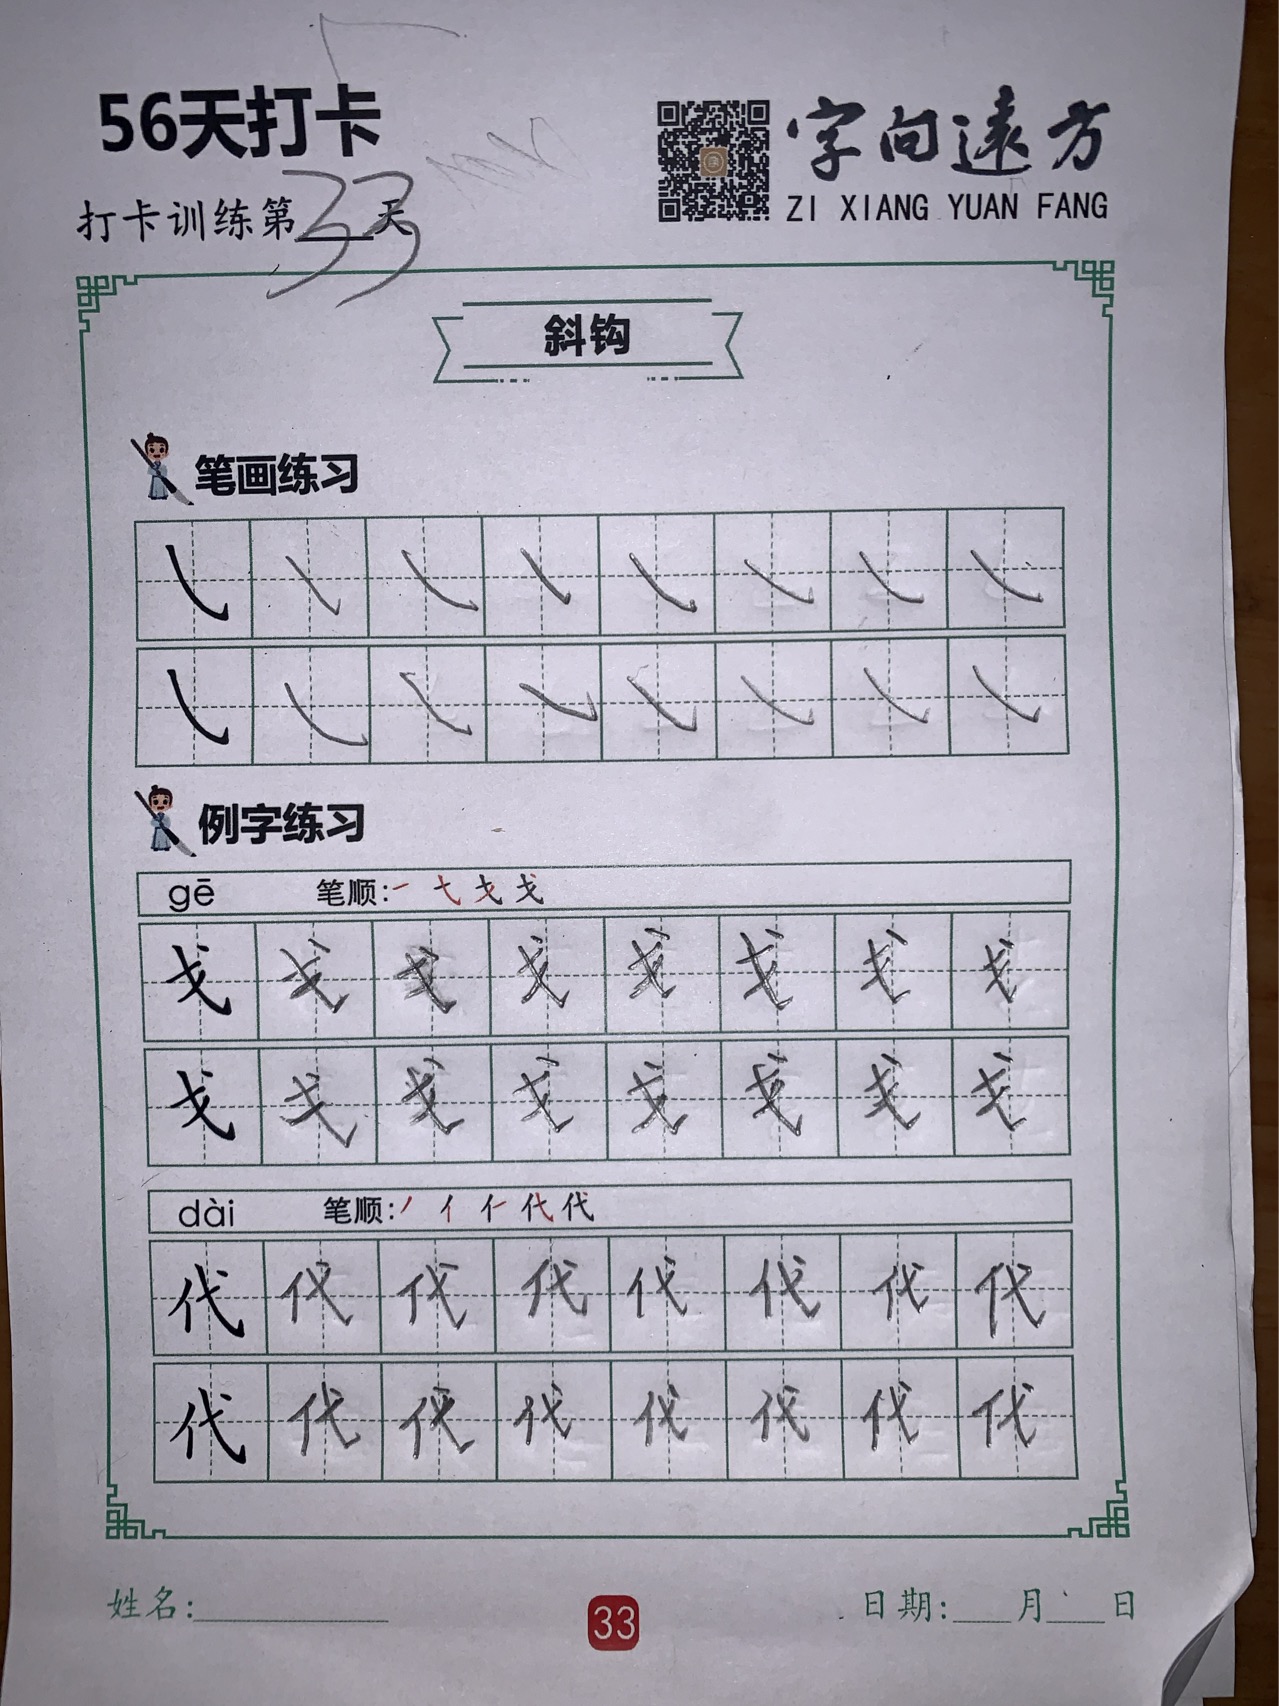 56天打卡
字向遠方
打卡训练第33天
ZI XIANG YUAN FANG
斜钩
笔画练习
㇂ ㇂ ㇂ ㇂ ㇂ ㇂ ㇂ ㇂
㇂ ㇂ ㇂ ㇂ ㇂ ㇂ ㇂ ㇂
例字练习
gē 笔顺:一 弋 戈 戈
戈 戈 戈 戈 戈 戈 戈 戈
戈 戈 戈 戈 戈 戈 戈 戈
dài 笔顺:丿 亻 仁 代 代
代 代 代 代 代 代 代 代
代 代 代 代 代 代 代 代
姓名:
33
日期: 月 日